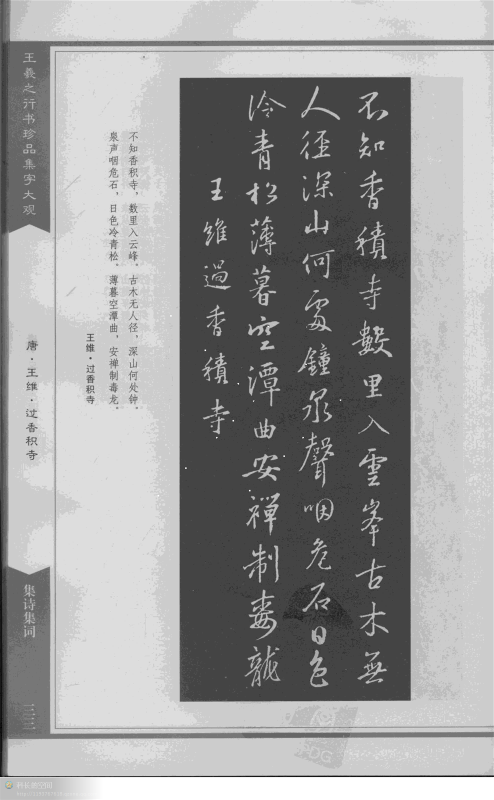 不知香積寺數里入雲峰古木無
人徑深山何處鐘泉聲咽危石日色
冷青松薄暮空潭曲安禪制毒龍
王維過香積寺
不知香积寺，数里入云峰，古木无人径，深山何处钟，
泉声咽危石，日色冷青松，薄暮空潭曲，安禅制毒龙，
王维·过香积寺
王羲之行书珍品集字大观
唐·王维·过香积寺
集诗集词